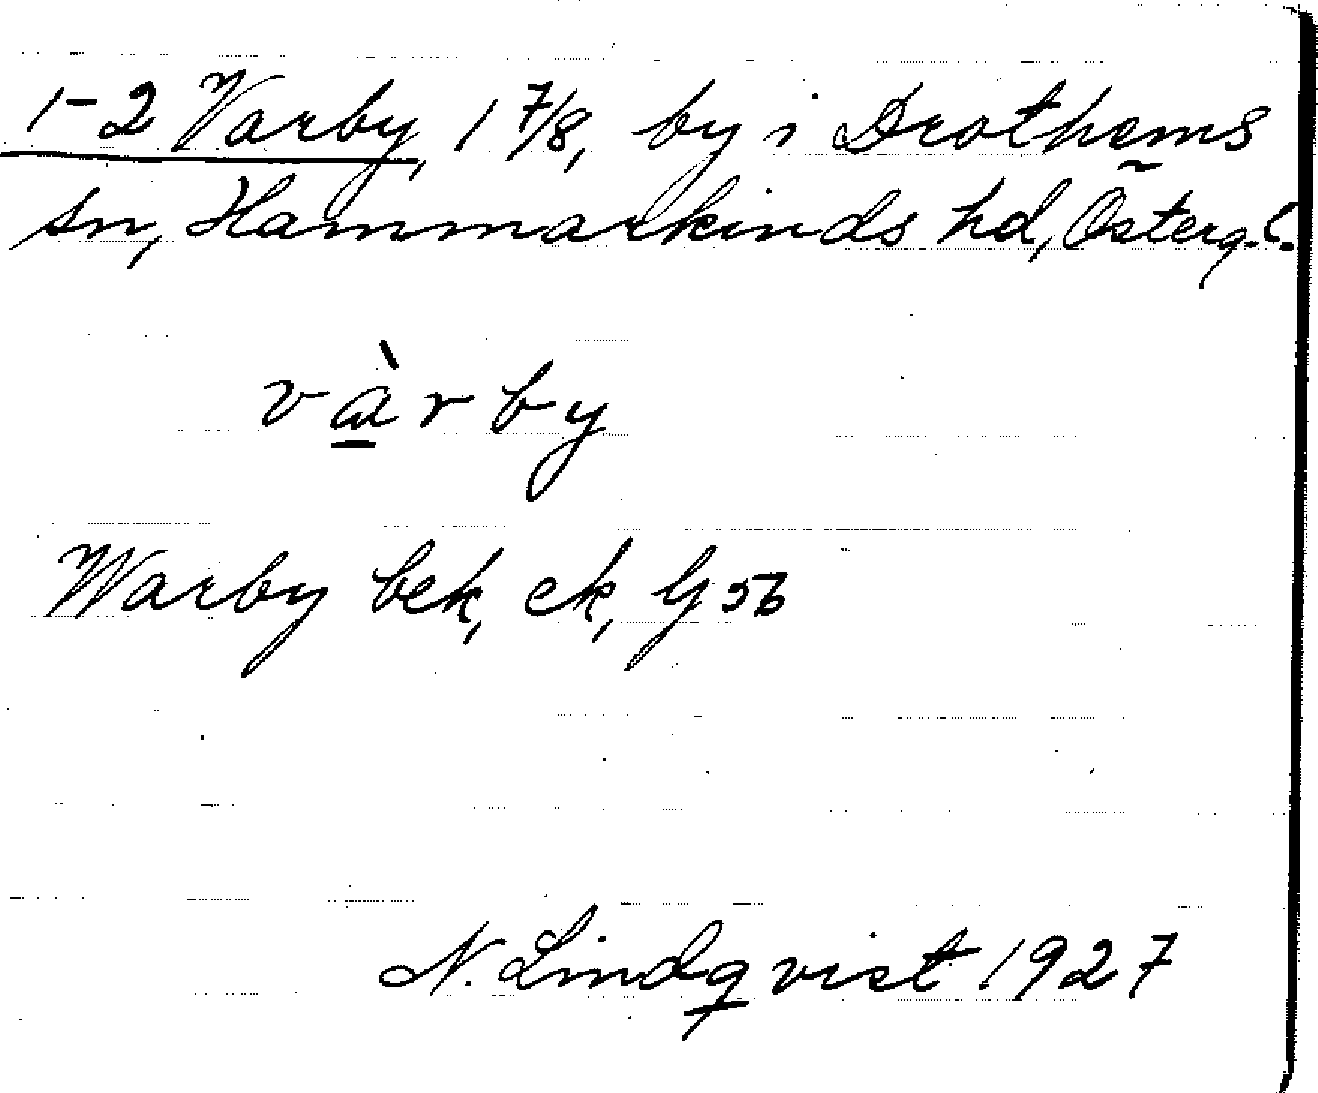 1-2 Varby, 1 7/8, by i Drothems
sn, Hammarkinds hd, Österg. l.
vàrby
Warby bek, ek, G 56
N. Lindqvist 1927